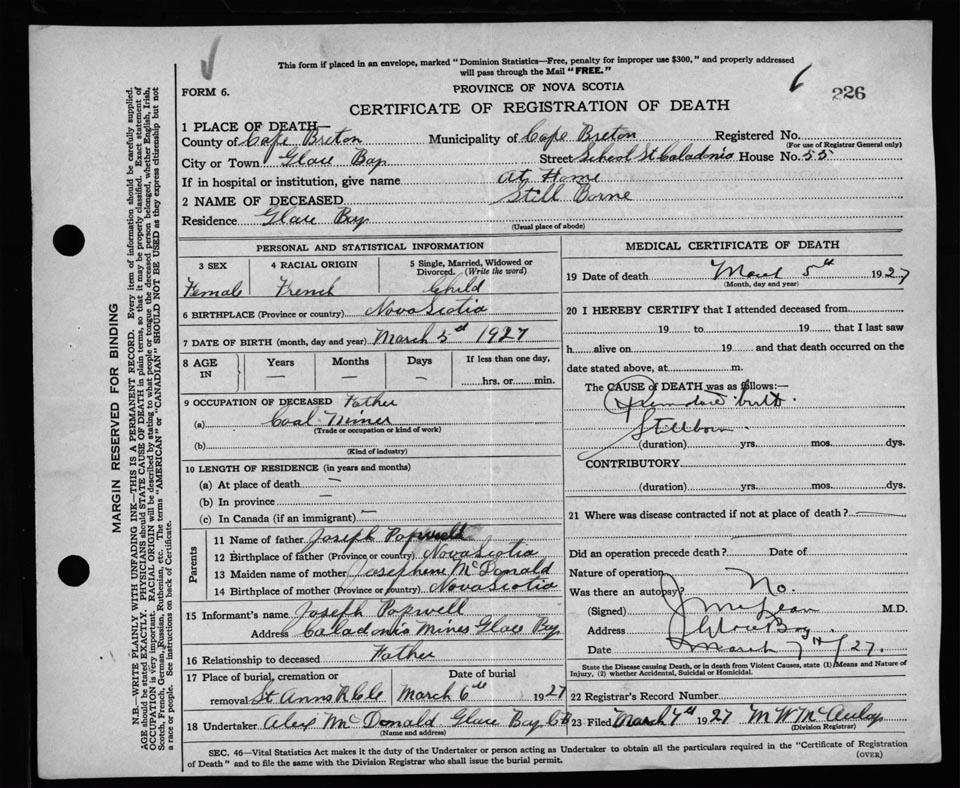 This form if placed in an envelope, marked "Dominion Statistics—Free, penalty for improper use $300," and properly addressed
will pass through the Mail "FREE."
FORM 6.
PROVINCE OF NOVA SCOTIA
6
226
CERTIFICATE OF REGISTRATION OF DEATH
1 PLACE OF DEATH—
County of Cape Breton Municipality of Cape Breton Registered No.
(For use of Registrar General only)
City or Town Glace Bay Street School St Caladonia House No. 55
If in hospital or institution, give name At Home
2 NAME OF DECEASED Still Borne
Residence Glace Bay
(Usual place of abode)
PERSONAL AND STATISTICAL INFORMATION
3 SEX 4 RACIAL ORIGIN 5 Single, Married, Widowed or
Divorced. (Write the word)
Female French Child
6 BIRTHPLACE (Province or country) Nova Scotia
7 DATE OF BIRTH (month, day and year) March 5th 1927
8 AGE IN Years Months Days If less than one day,
— — — hrs. or min.
9 OCCUPATION OF DECEASED Father
(a) Coal Miner
(Trade or occupation or kind of work)
(b)
(Kind of industry)
10 LENGTH OF RESIDENCE (in years and months)
(a) At place of death —
(b) In province —
(c) In Canada (if an immigrant) —
Parents
11 Name of father Joseph Popwell
12 Birthplace of father (Province or country) Nova Scotia
13 Maiden name of mother Josephene McDonald
14 Birthplace of mother (Province or country) Nova Scotia
15 Informant's name Joseph Popwell
Address Caladonia Mines Glace Bay
16 Relationship to deceased Father
17 Place of burial, cremation or Date of burial
removal St Anns March 6th 1927
18 Undertaker Alex McDonald Glace Bay CB
(Name and address)
MEDICAL CERTIFICATE OF DEATH
19 Date of death March 5th 1927
(Month, day and year)
20 I HEREBY CERTIFY that I attended deceased from
19 to 19 that I last saw
h alive on 19 and that death occurred on the
date stated above, at m.
The CAUSE OF DEATH was as follows:—
Premature birth
Stillborn
(duration) yrs. mos. dys.
CONTRIBUTORY
(duration) yrs. mos. dys.
21 Where was disease contracted if not at place of death?
Did an operation precede death? Date of
Nature of operation
Was there an autopsy? No.
(Signed) J McLean M.D.
Address Glace Bay
Date March 7th/27.
State the Disease causing Death, or in death from Violent Causes, state (1) Means and Nature of
Injury, (2) whether Accidental, Suicidal or Homicidal.
22 Registrar's Record Number
23 Filed March 7th 1927 M W McAulay
(Division Registrar)
SEC. 46—Vital Statistics Act makes it the duty of the Undertaker or person acting as Undertaker to obtain all the particulars required in the "Certificate of Registration
of Death" and to file the same with the Division Registrar who shall issue the burial permit.
(OVER)
MARGIN RESERVED FOR BINDING
N.B.—WRITE PLAINLY WITH UNFADING INK—THIS IS A PERMANENT RECORD. Every item of information should be carefully supplied.
AGE should be stated EXACTLY. PHYSICIANS should STATE CAUSE OF DEATH in plain terms, so that it may be properly classified. Exact statement of
OCCUPATION is very important. RACIAL ORIGIN will be described by stating to what people or tongue the deceased person belonged, whether English, Irish,
Scotch, French, German, Russian, Ruthenian, etc. The terms "AMERICAN" or "CANADIAN" SHOULD NOT BE USED as they express citizenship but not
a race or people. See instructions on back of Certificate.